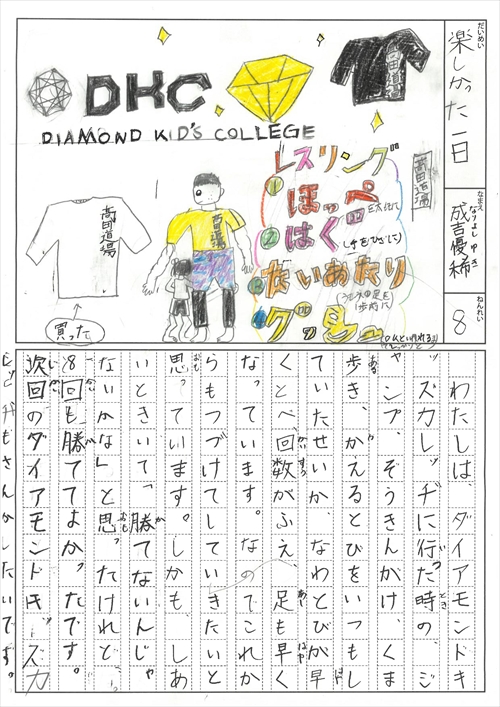 だいめい
楽しかった一日
なまえ
なりよし ゆき
成吉優稀
ねんれい
8
DKC
DIAMOND KID'S COLLEGE
高田道場
レスリング
①ほっぺ
②はく
③たいあたり
④
高田道場
高田道場
高田道場
買った
わたしは、ダイアモンドキ
ッズカレッヂに行った時の、ジ
ャンプ、ぞうきんがけ、くま
歩き、かえるとびをいつもし
ていたせいか、なわとびが早
くとべ、回数がふえ、足も早く
なっています。なのでこれか
らもつづけてしていきたいと
思っています。しかも、しあ
いときいて「勝てないんじゃ
ないかな」と思ったけれど、
8回も勝ててよかったです。
次回のダイアモンドキッズカ
レッヂもさんかしたいです。